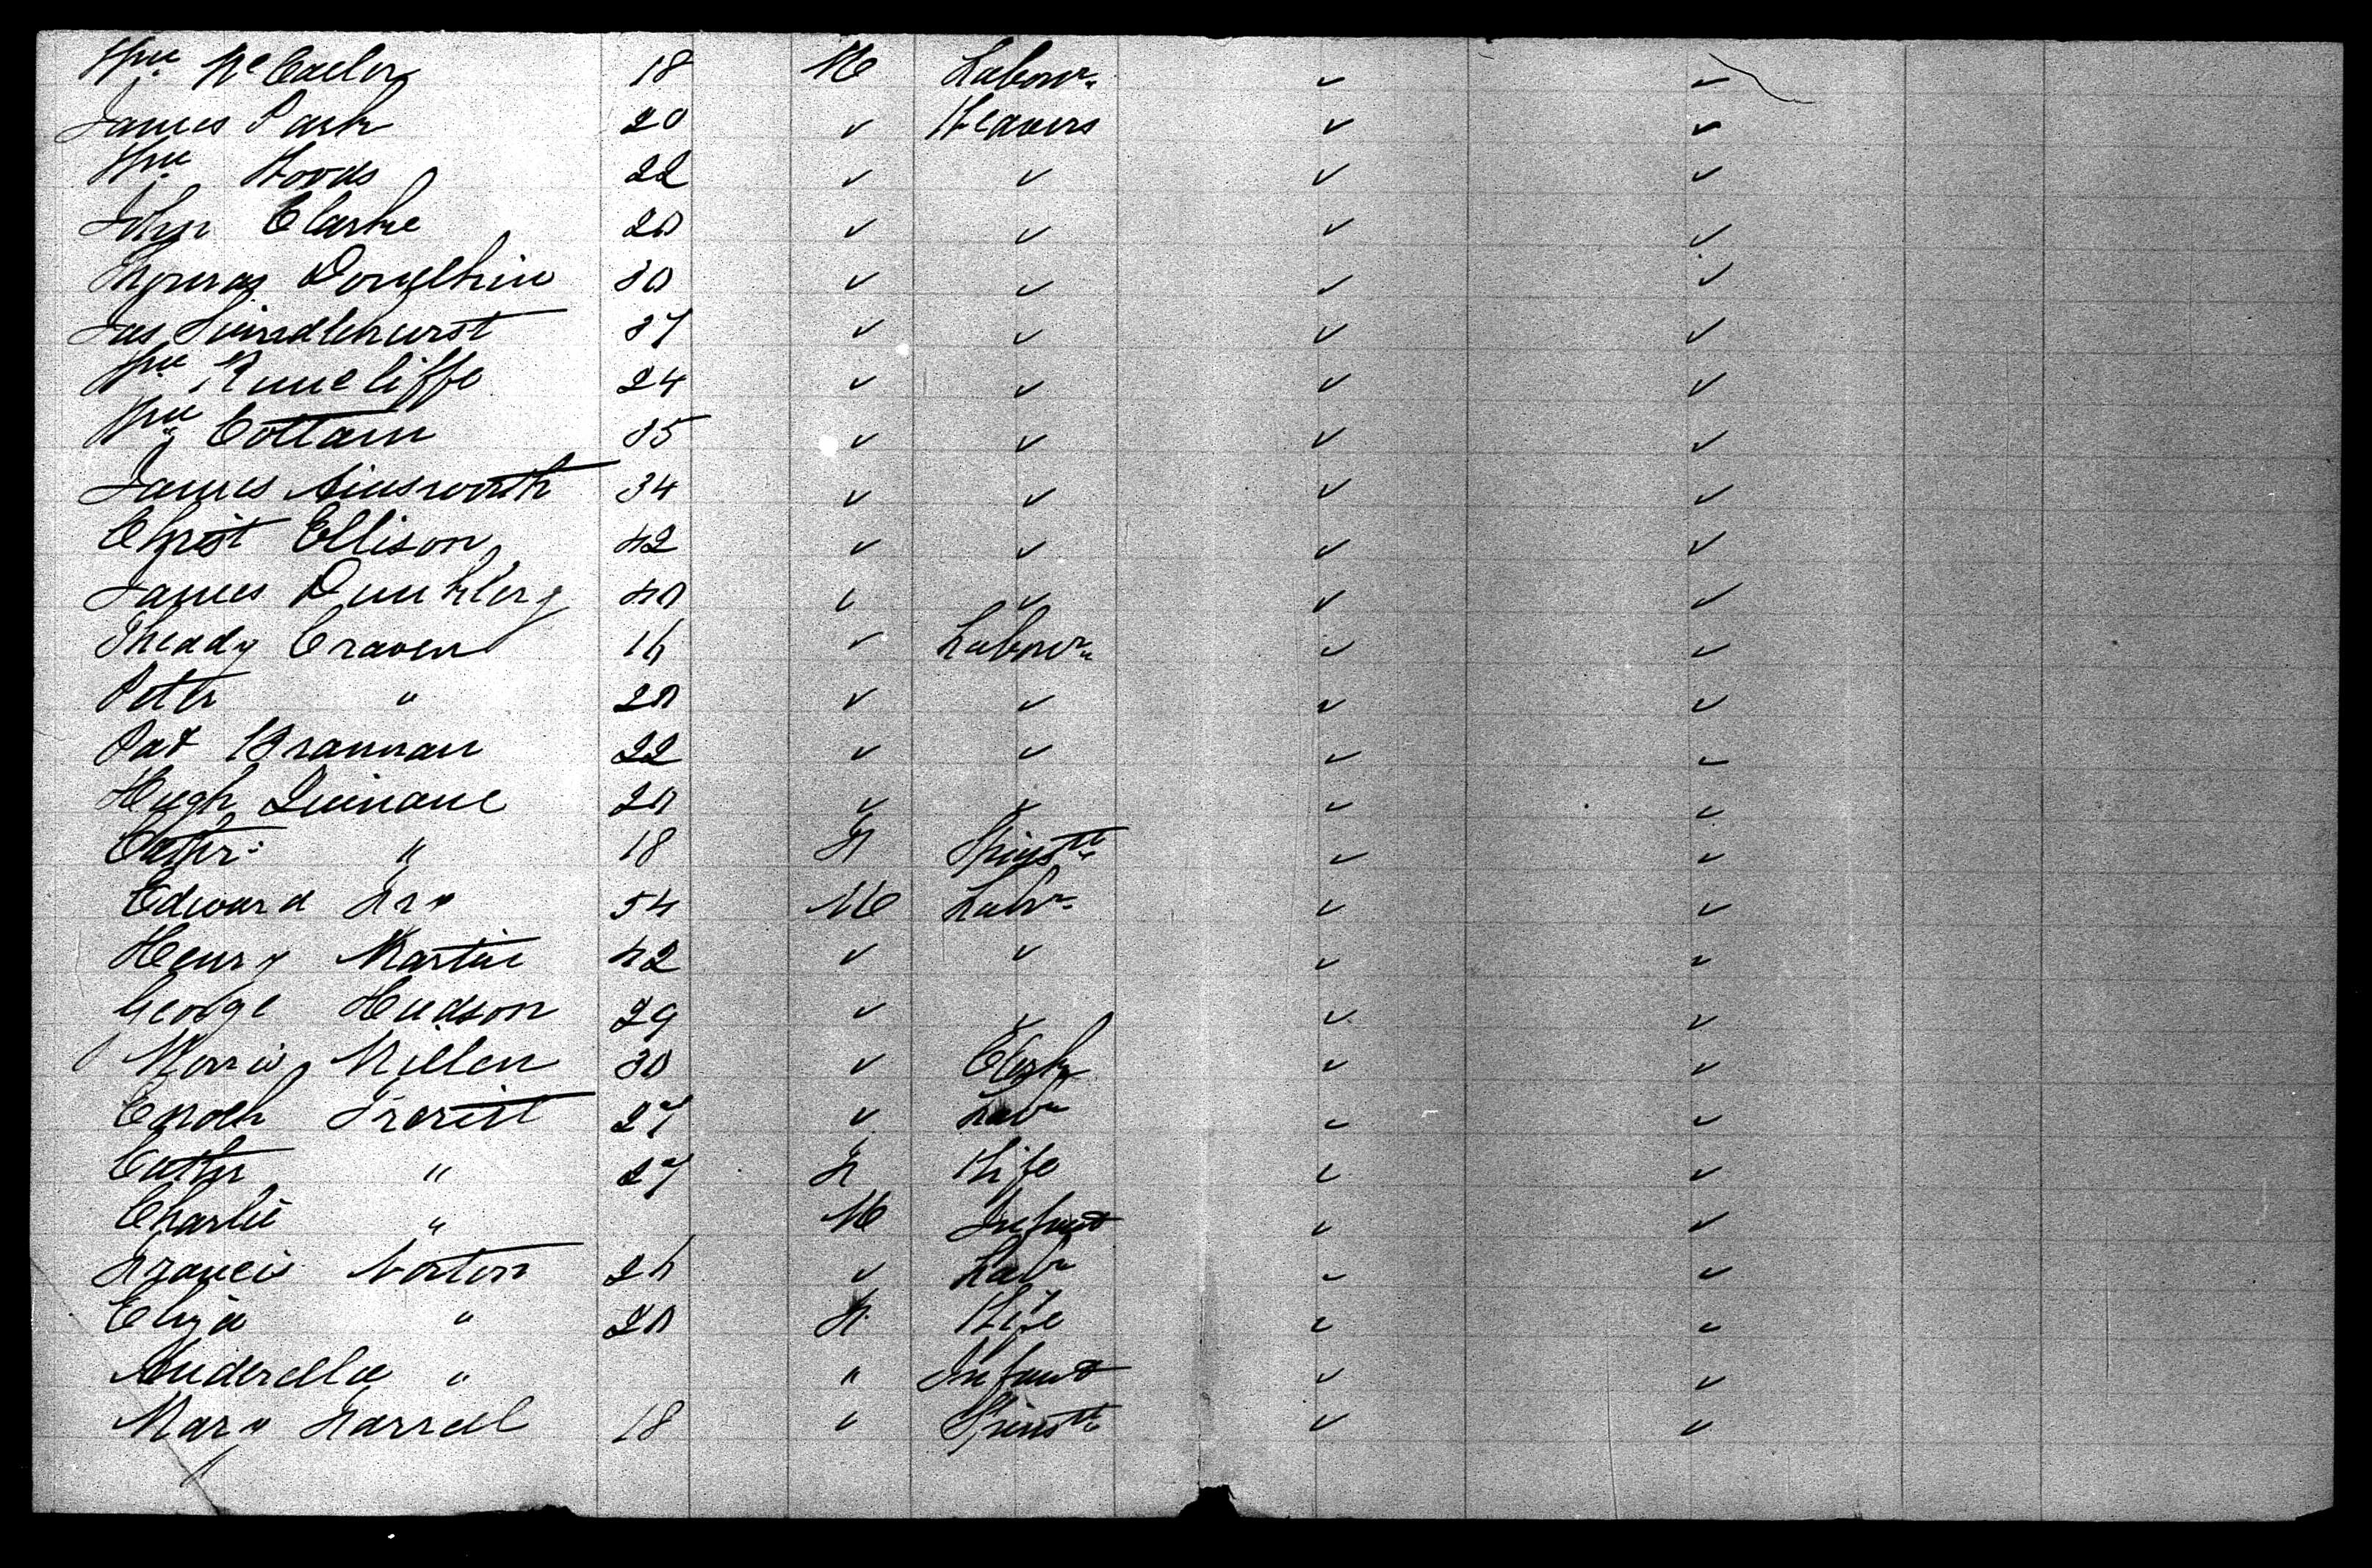 Wm McCaeler 18 M Labour ✓ ✓
James Park 20 ✓ Weavers ✓ ✓
Wm Woods 22 ✓ ✓ ✓ ✓
John Clarke 20 ✓ ✓ ✓ ✓
Thomas 30 ✓ ✓ ✓ ✓
Jas Swindlehurst 37 ✓ ✓ ✓ ✓
Wm Runcliffe 24 ✓ ✓ ✓ ✓
Wm Cottam 35 ✓ ✓ ✓ ✓
James Ainsworth 34 ✓ ✓ ✓ ✓
Christ Ellison 42 ✓ ✓ ✓ ✓
James Dunkley 40 ✓ ✓ ✓ ✓
Theady Craven 16 ✓ Labour ✓ ✓
Peter " 20 ✓ ✓ ✓ ✓
Pat Brannan 22 ✓ ✓ ✓ ✓
Hugh Quinane 20 ✓ ✓ ✓ ✓
Cathr: " 18 F Spinstr ✓ ✓
Edward Fry 54 M Labr ✓ ✓
Henry Martin 42 ✓ ✓ ✓ ✓
George Hudson 29 ✓ ✓ ✓ ✓
Morris Millen 30 ✓ Clerk ✓ ✓
Enoch 27 ✓ Labr ✓ ✓
Cathr " 27 F Wife ✓ ✓
Charlie " M Infant ✓ ✓
Francis Norton 26 ✓ Labr ✓ ✓
Eliza " 20 F Wife ✓ ✓
" " Infant ✓ ✓
Mary Farrell 18 ✓ Spinstr ✓ ✓